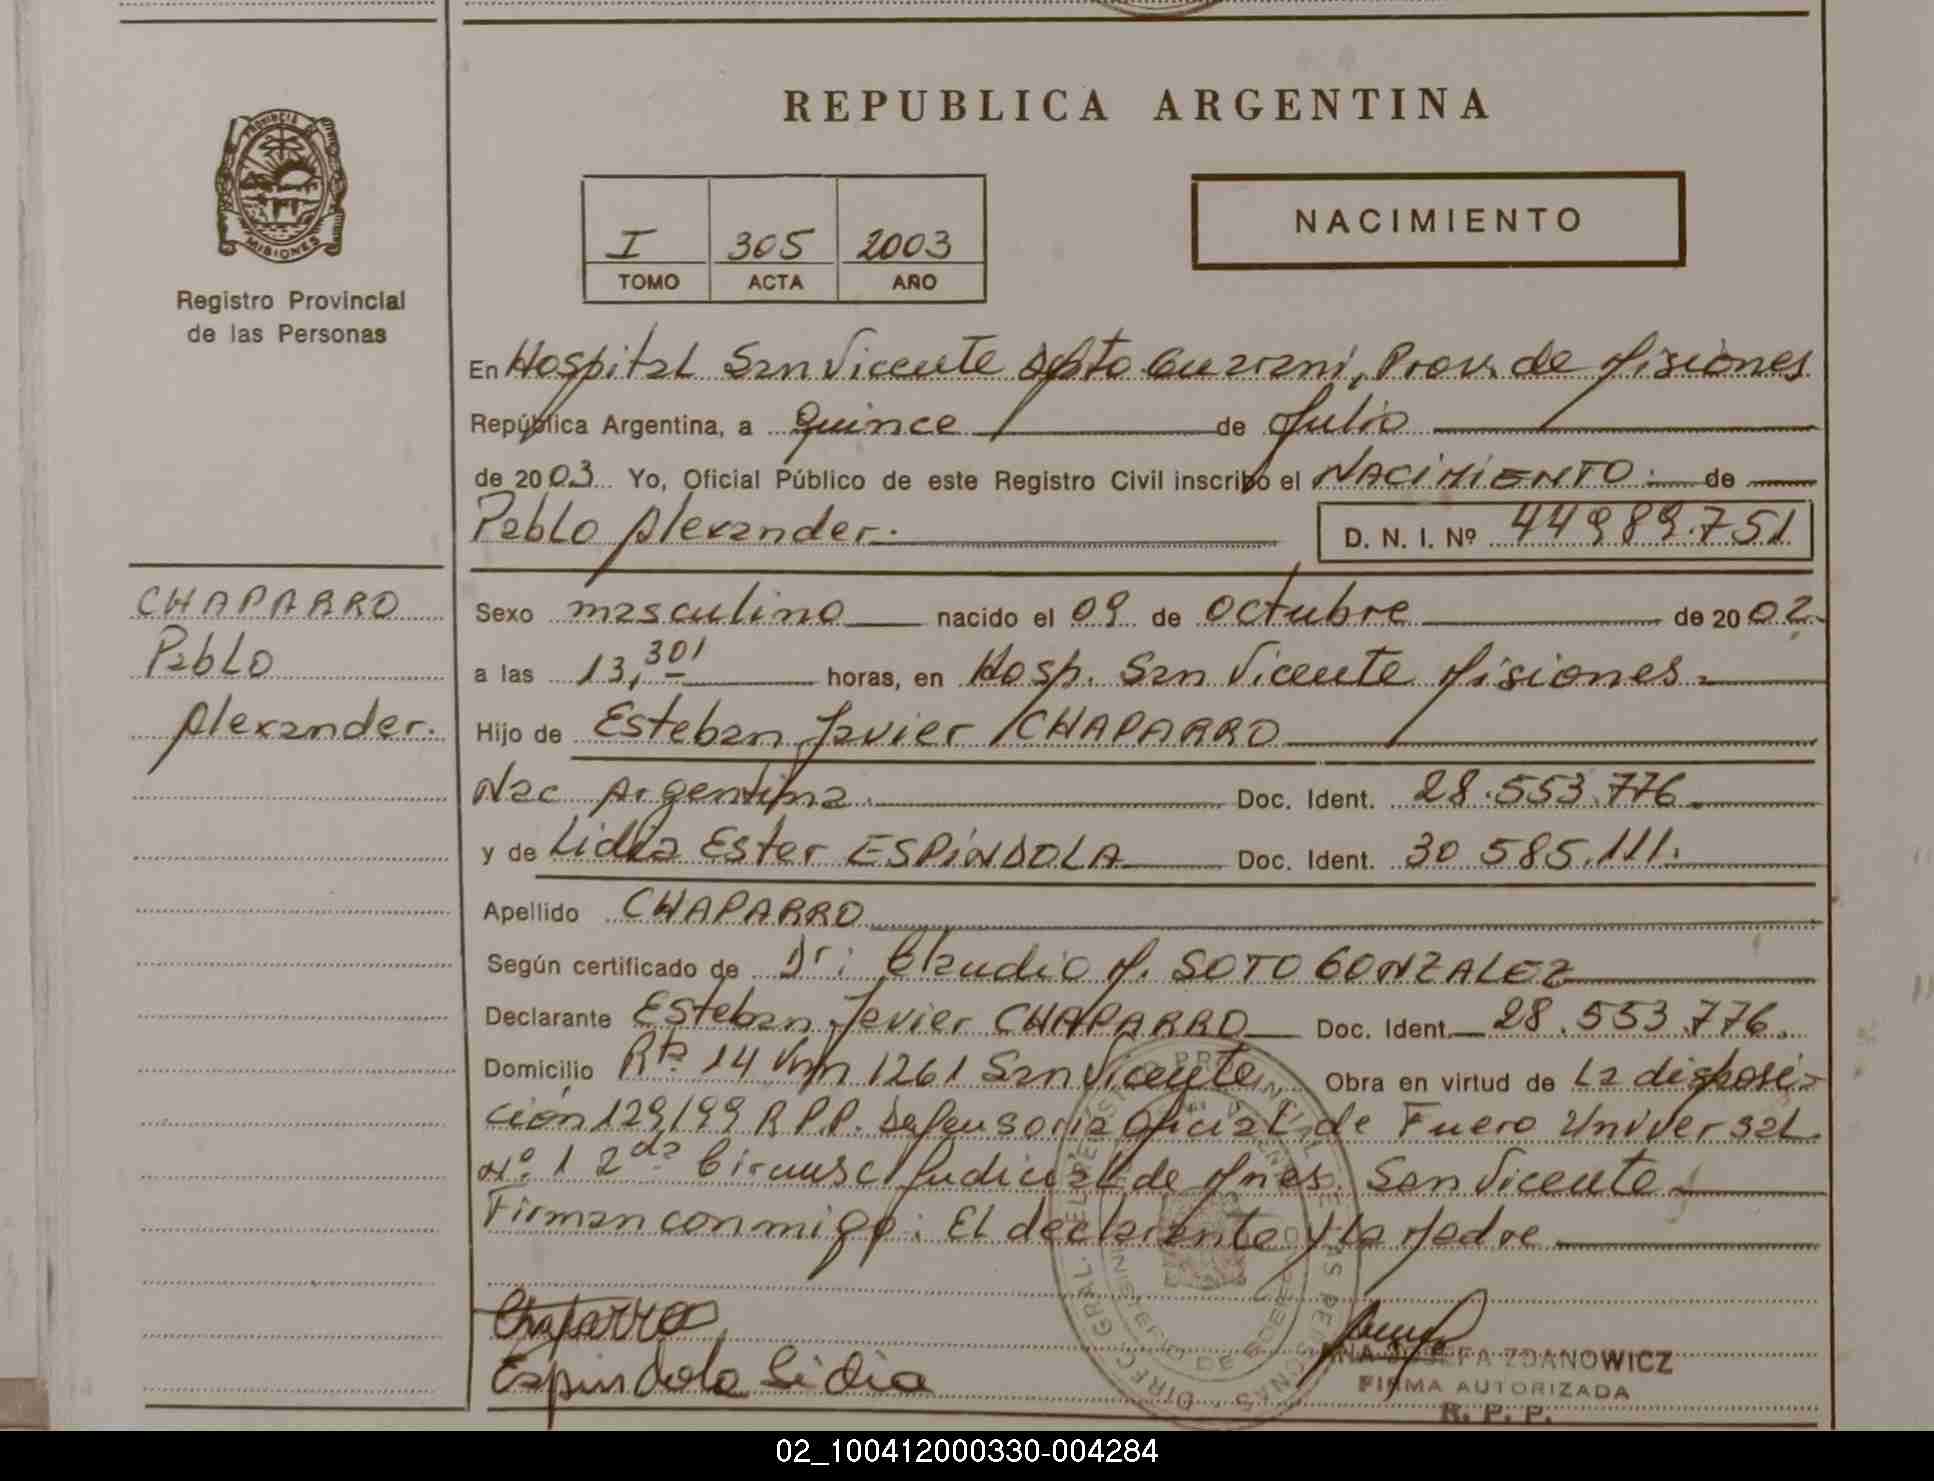 REPUBLICA ARGENTINA
PROVINCIA DE MISIONES
Registro Provincial
de las Personas
I 305 2003
TOMO ACTA AÑO
NACIMIENTO
En Hospital San Vicente Dpto Guarani, Prov. de Misiones
República Argentina, a Quince de Julio
de 2003 Yo, Oficial Público de este Registro Civil inscribo el NACIMIENTO de
Pablo Alexander.
D. N. I. Nº 44989.751
CHAPARRO
Pablo
Alexander.
Sexo masculino nacido el 09 de Octubre de 2002.
a las 13,30 horas, en Hosp. San Vicente Misiones
Hijo de Esteban Javier CHAPARRO
Nac Argentina. Doc. Ident. 28.553.776
y de Lidia Ester ESPÍNDOLA Doc. Ident. 30 585.111.
Apellido CHAPARRO
Según certificado de Dr: Claudio M. SOTO GONZALEZ
Declarante Esteban Javier CHAPARRO Doc. Ident. 28.553.776.
Domicilio Rta 14 Km 1261 San Vicente Obra en virtud de La disposi-
ción 129/99 R P.P. Defensoria Oficial de Fuero Universal
Nº 1 2da Circunsc Judicial de Mnes. San Vicente
Firman conmigo: El declarante y la Madre
Chaparro
Espindola Lidia
ANA JOSEFA ZDANOWICZ
FIRMA AUTORIZADA
R. P. P.
02_100412000330-004284